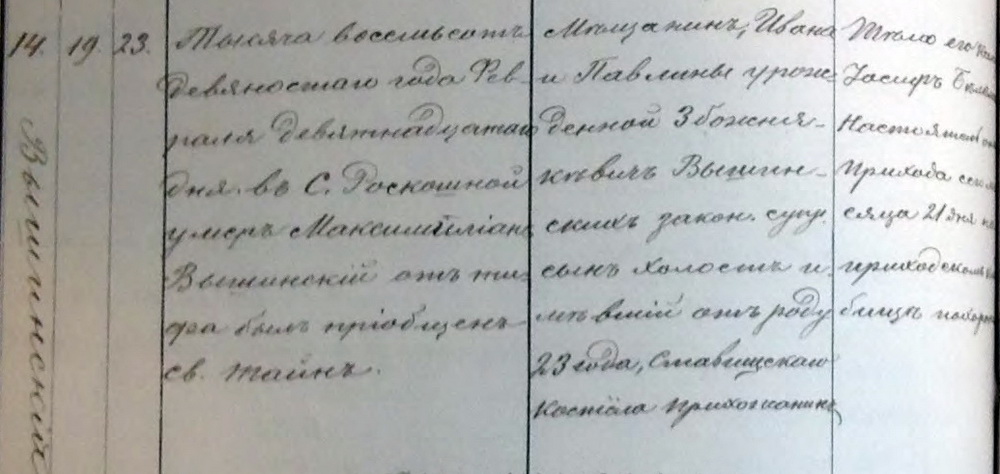 14. 19. 23.
Вышинскій
Тысяча восемьсотъ
девяностаго года Фев-
раля девятнадцатаго
дня въ С. Роскошной
умеръ Максимиліанъ
Вышинскій отъ ти-
фа былъ пріобщенъ
св. тайнъ.
Мѣщанинъ, Ивана
и Павлины урож-
денной Збожня-
кевичъ Вышин-
скихъ закон. супр.
сынъ холостъ и-
мѣвшій отъ роду
23 года, Ставищскаго
Костёла прихожанинъ
Тѣло его
Іосифъ
Настоятель
прихода сего м
сяца 21 дня на
приходскомъ
бищѣ похоро